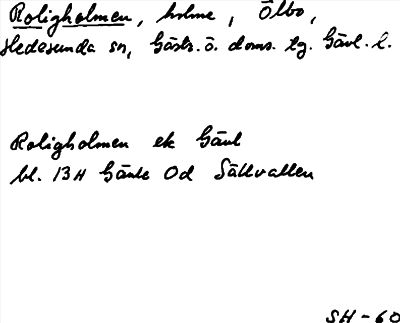 Roligholmen, holme, Ölbo,
Hedesunda sn, Gästr. ö. doms. tg. Gävl. l.
Roligholmen ek Gävl
bl. 13H Gävle 0d Sällvallen
SH-60